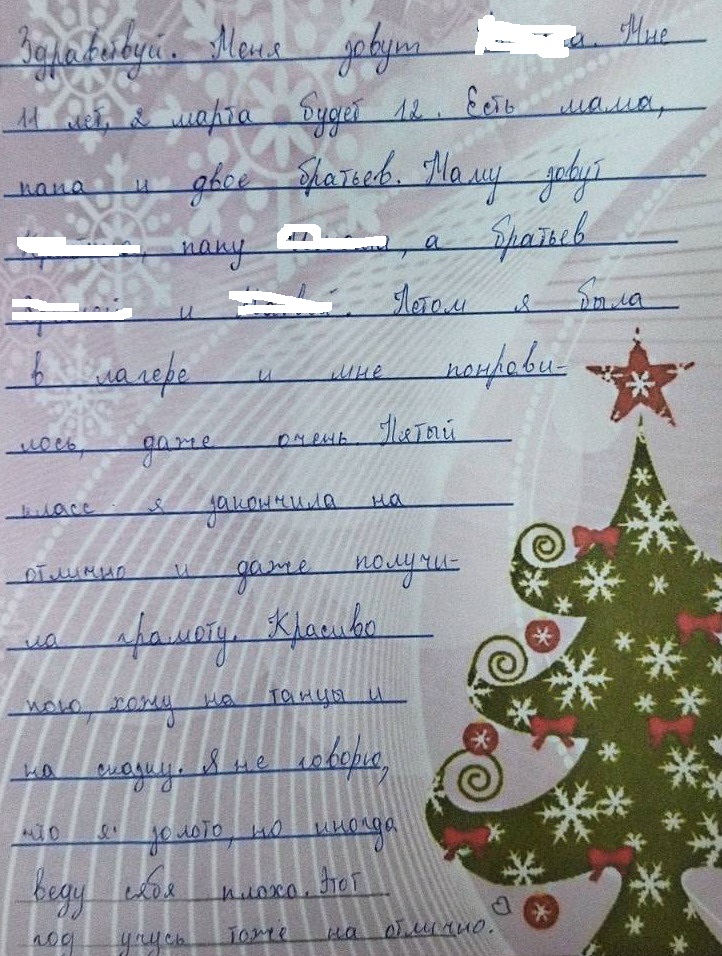 Здравствуй. Меня зовут а. Мне
11 лет, 2 марта будет 12. Есть мама,
папа и двое братьев. Маму зовут
, папу , а братьев
и . Летом я была
в лагере и мне понрави-
лось, даже очень. Пятый
класс я закончила на
отлично и даже получи-
ла грамоту. Красиво
пою, хожу на танцы и
на . Я не говорю,
что я золото, но иногда
веду себя плохо. Этот
год учусь тоже на отлично.